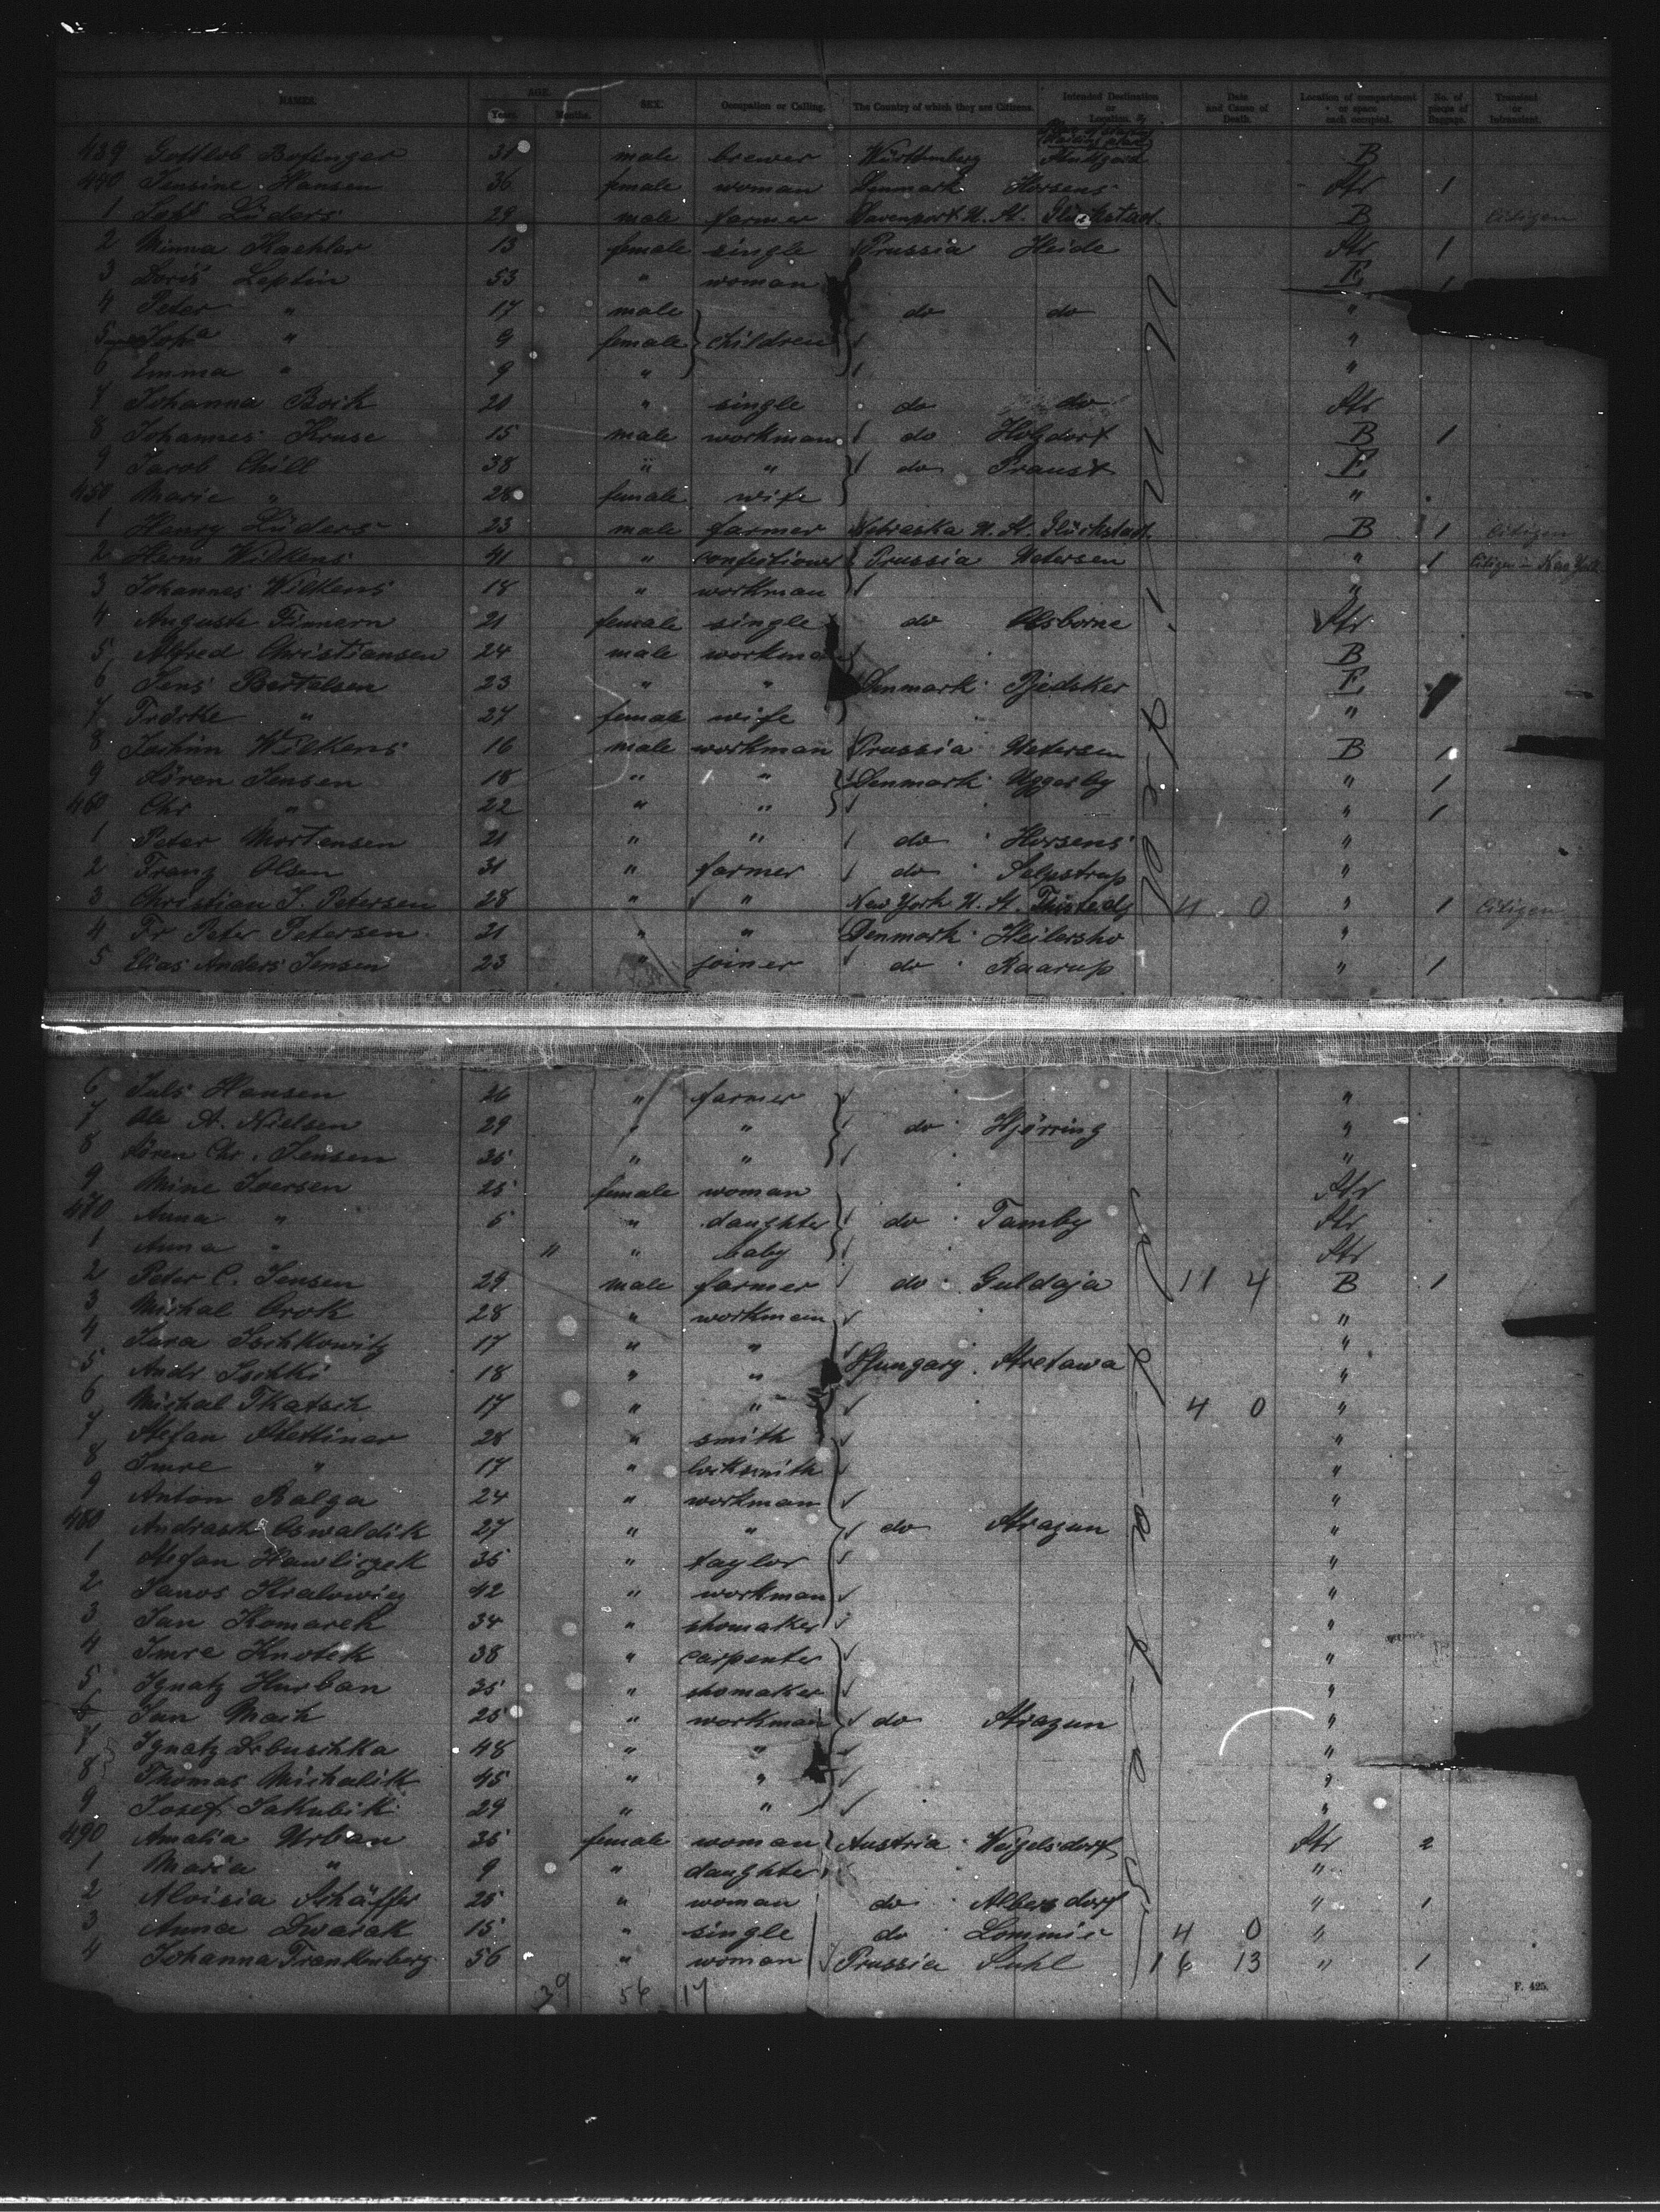 NAMES. AGE. Years. Months. SEX. Occupation or Calling. The Country of which they are Citizens. Intended Destination or Location. Date and Cause of Death. Location of compartment or space each occupied. No. of pieces of Baggage. Transient or Intransient.
439 Gottlob Bofinger 31 male brewer Württemberg Stuttgart B
440 Jensine Hansen 36 female woman Denmark Horsens Str 1
1 Lüders 29 male farmer Davenport U. St. Glückstad. B Citizen
2 Minna Kaehler 13 female single Prussia Heide Str 1
3 Doris Leptin 53 " woman E 1
4 Peter " 17 male do do "
5 " 9 female children "
6 Emma " 9 " "
7 Johanna Boik 20 " single do do Str
8 Johannes Kruse 15 male workman do Holzdorf B 1
9 Jacob Chill 38 " " do Praust E
450 Marie " 28 female wife "
1 Henry Lüders 23 male farmer Nebraska U. St. Glückstad. B 1 Citizen
2 Herm Wilkens 41 " confectioner Prussia Uetersen " 1 Citizen New York
3 Johannes Wilkens 18 " workman "
4 Auguste Timmern 21 female single do Olsborne Str
5 Alfred Christiansen 24 male workman B
6 Jens Bertelsen 23 " " Denmark Pjedsker E
7 " 27 female wife "
8 Jochim Wilkens 16 male workman Prussia Uetersen B 1
9 Sören Jensen 18 " " Denmark Uggerby " 1
460 Chr " 22 " " " 1
1 Peter Mortensen 21 " " do Horsens "
2 Franz Olsen 31 " farmer do "
3 Christian J. Petersen 28 " " New York U. St. Thistedy 4 0 " 1 Citizen
4 Fr Peter Petersen 21 " " Denmark Heilersho "
5 Elias Anders Jensen 23 " joiner do Kaarup " 1
6 Juls Hansen 26 " farmer "
7 Ole A. Nielsen 29 " " do Hjörring "
8 Sören Chr. Jensen 35 " " "
9 Mine Iversen 25 female woman Str
470 Anna " 5 " daughter do Tamby Str
1 Anna " 11 " baby Str
2 Peter C. Jensen 29 male farmer do Guldaja 11 4 B 1
3 Michal Orok 28 " workman "
4 Jara Ischkowitz 17 " " "
5 Andr Ischki 18 " " Hungary Stretawa "
6 Michal Tkatsch 17 " " 4 0 "
7 Stefan Stettinar 28 " smith "
8 Imre " 17 " locksmith "
9 Anton Balga 24 " workman "
480 Andrasch Oswaldik 27 " " do Strazun "
1 Stefan Hawliczek 35 " taylor "
2 Janos Kralowicz 42 " workman "
3 Jan Komarek 34 " shomaker "
4 Imre Knotek 38 " carpenter "
5 Ignatz Hurban 35 " shomaker "
6 Jan Mach 25 " workman do Strazun "
7 Ignatz Drbuschka 48 " " "
8 Thomas Michalik 45 " " "
9 Josef Jakubik 29 " " "
490 Amalia Urban 35 female woman Austria Weigelsdorf Str 2
1 Maria " 9 " daughter "
2 Aloisia Schäffer 25 " woman do Albersdorf " 1
3 Anna Dwarak 15 " single do 4 0 "
4 Johanna Frankenberg 56 " woman Prussia Suhl 16 13 " 1
39 56 17
F. 425.